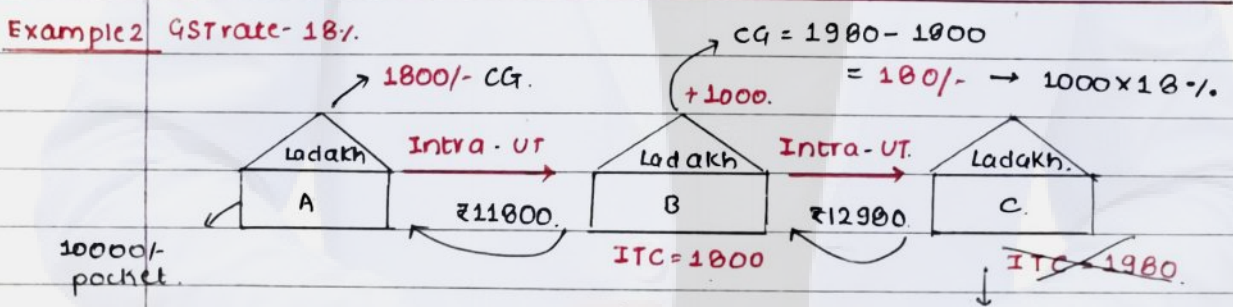 Example 2 GST rate - 18%.
CG = 1980 - 1800
1800/- CG.
= 180/- → 1000 × 18%.
+1000.
Ladakh
Intra-UT
Ladakh
Intra-UT.
Ladakh.
A
₹11800.
B
₹12980
C.
10000/-
pocket.
ITC = 1800
ITC = 1980